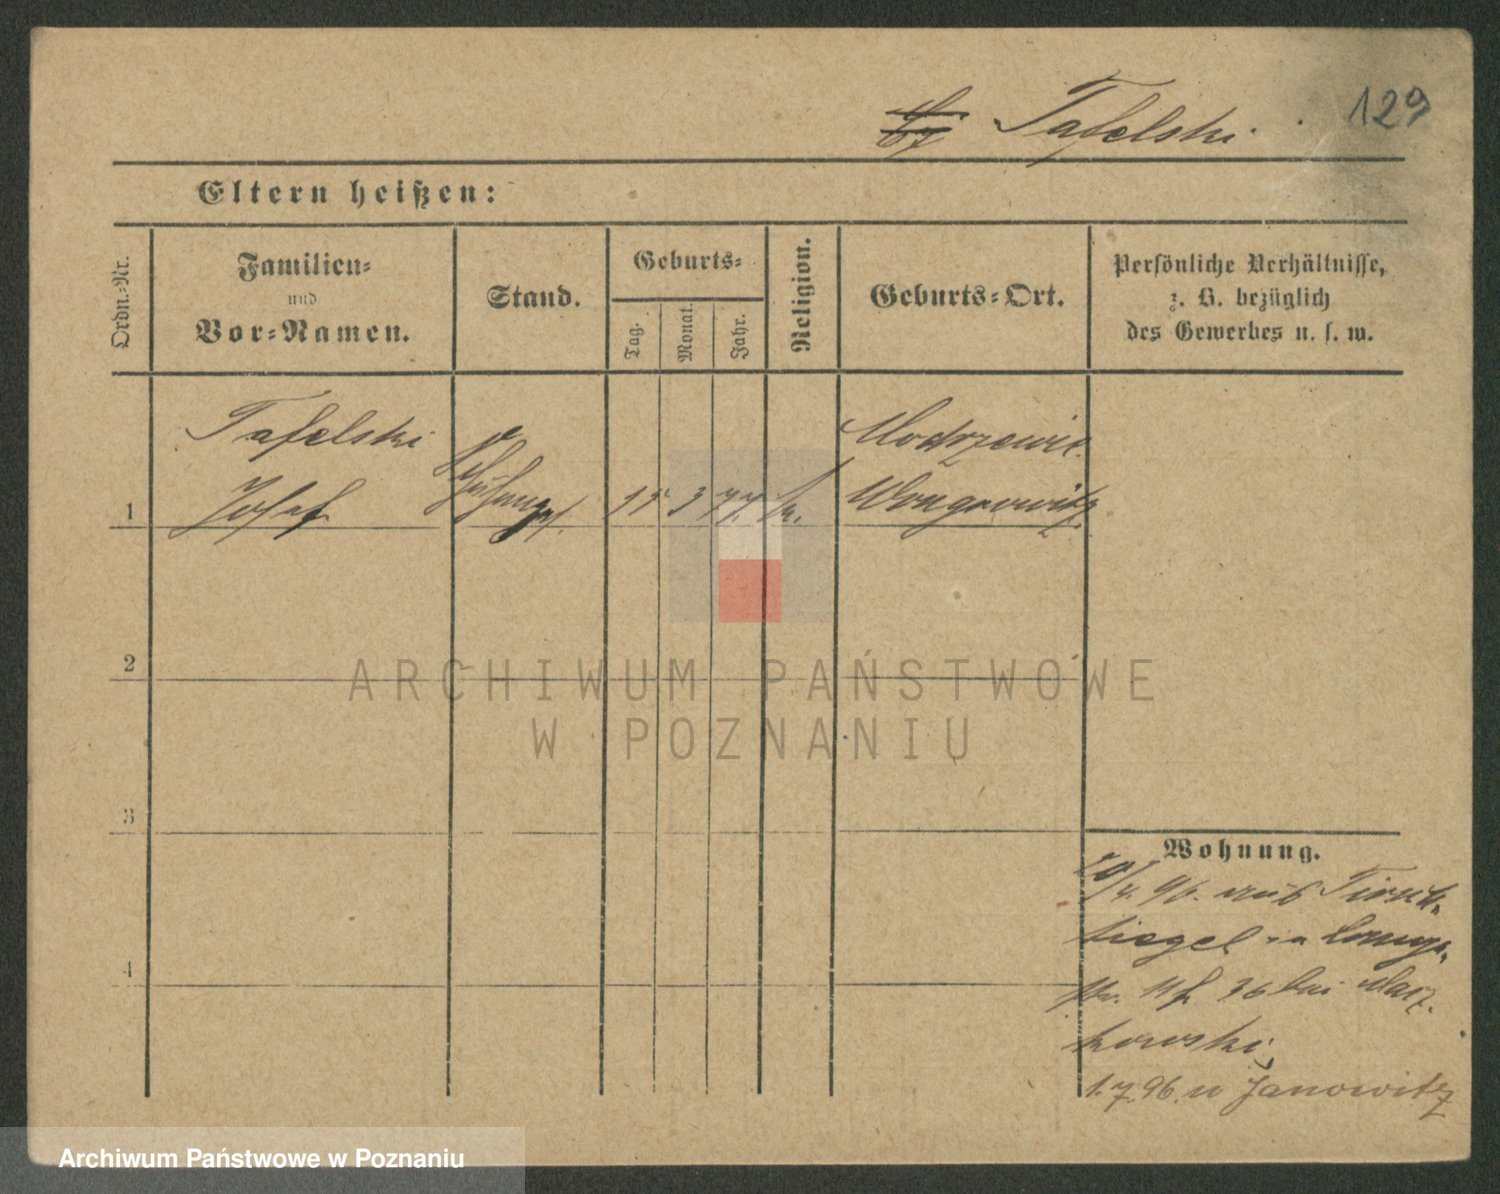 Tafelski
129
Eltern heißen:
Ordn.-Nr.
Familien-
und
Vor-Namen.
Stand.
Geburts-
Tag.
Monat.
Jahr.
Religion.
Geburts-Ort.
Persönliche Verhältnisse,
z. B. bezüglich
des Gewerbes u. s. w.
Tafelski
Josef
Modrzewie
Wongrowitz
1
3
2
3
4
Wohnung.
20/4. 96. aus Tirsch-
tiegel in
36 bei Marz-
kowski
1.7.96. n Janowitz
ARCHIWUM PAŃSTWOWE
W POZNANIU
Archiwum Państwowe w Poznaniu